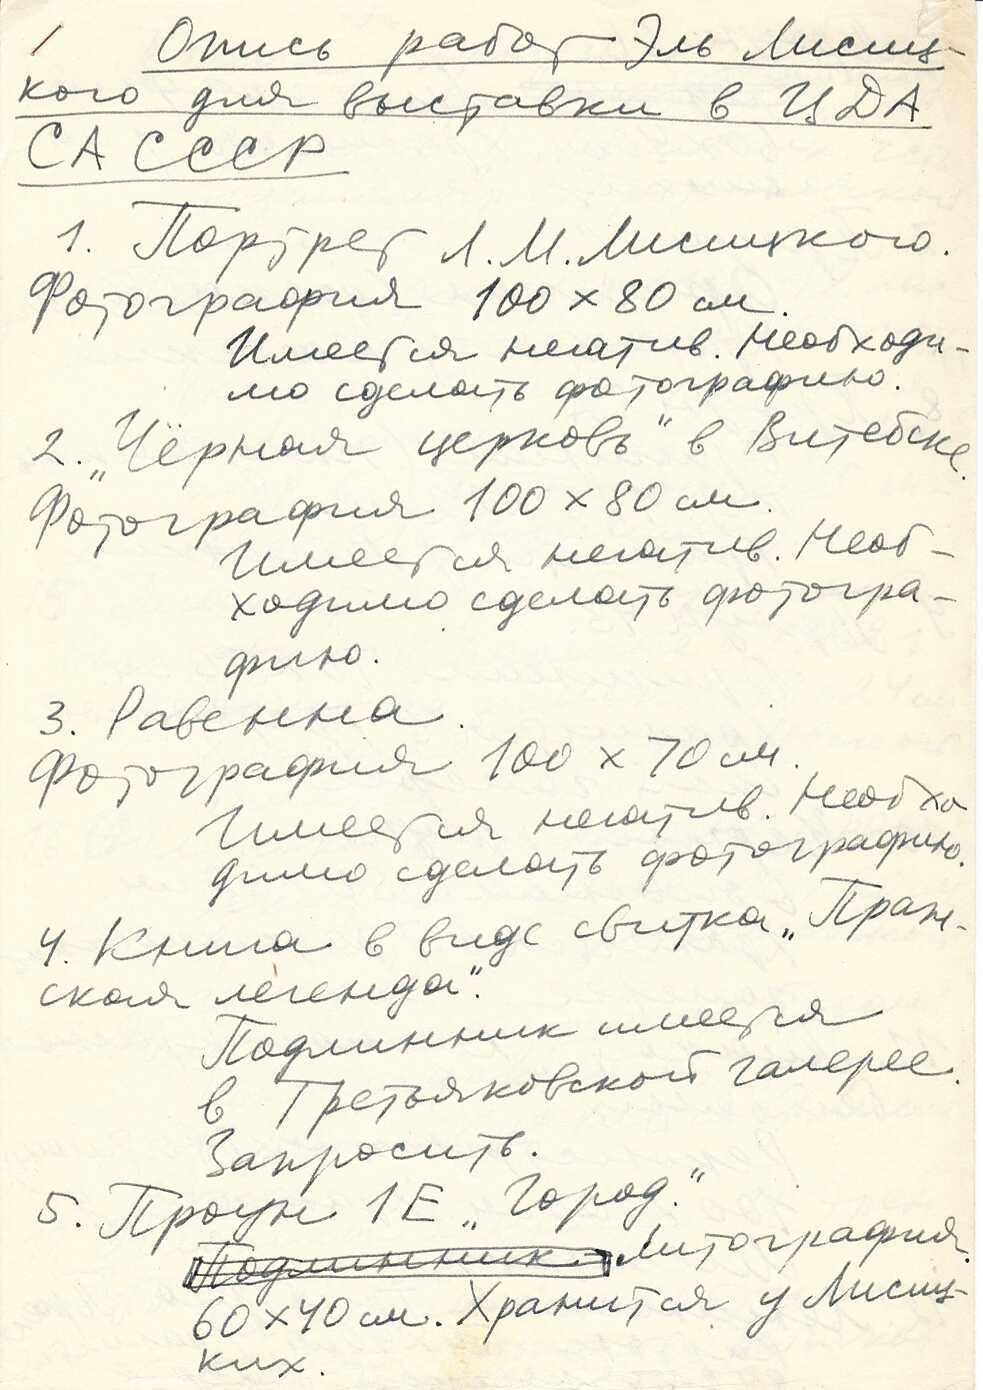 1
Опись работ Эль Лисиц-
кого для выставки в ЦДА
СА СССР
1. Портрет Л.М. Лисицкого.
Фотография 100 x 80 см.
Имеется негатив. Необходи-
мо сделать фотографию.
2. „Чёрная церковь" в Витебске.
Фотография 100 x 80 см.
Имеется негатив. Необ-
ходимо сделать фотогра-
фию.
3. Равенна.
Фотография 100 x 70 см.
Имеется негатив. Необхо
димо сделать фотографию.
4. Книга в виде свитка „Праж-
ская легенда".
Подлинник имеется
в Третьяковской галерее.
Запросить.
5. Проун 1Е „Город."
Подлинник. Литография.
60x40 см. Хранится у Лисиц-
ких.